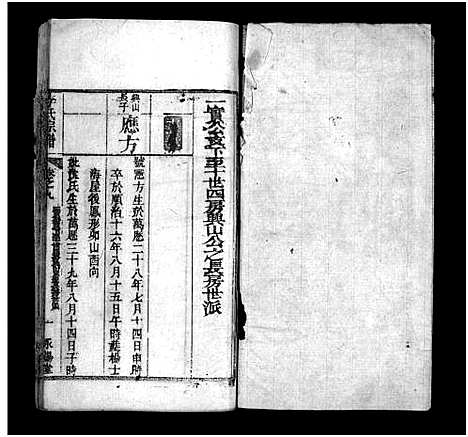 一實公下十世四房興山公之長房世派
興山長子
應方
號應方生於萬歷二十八年七月十四日申時
卒於順治十六年八月十五日午時葬楊士
海屋後鳳形卯山酉向
氏生於萬歷三十九年八月十四日子時
氏宗譜
卷之九
一
永陽堂